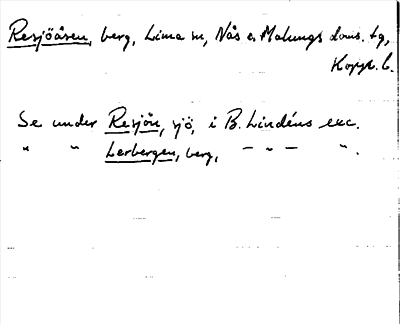 Resjöåsen, berg, Lima sn, Nås o. Malungs doms. tg,
Kopp. l.
Se under Resjön, sjö, i B. Lindéns exc.
" " Lerbergen, berg, – " – ".